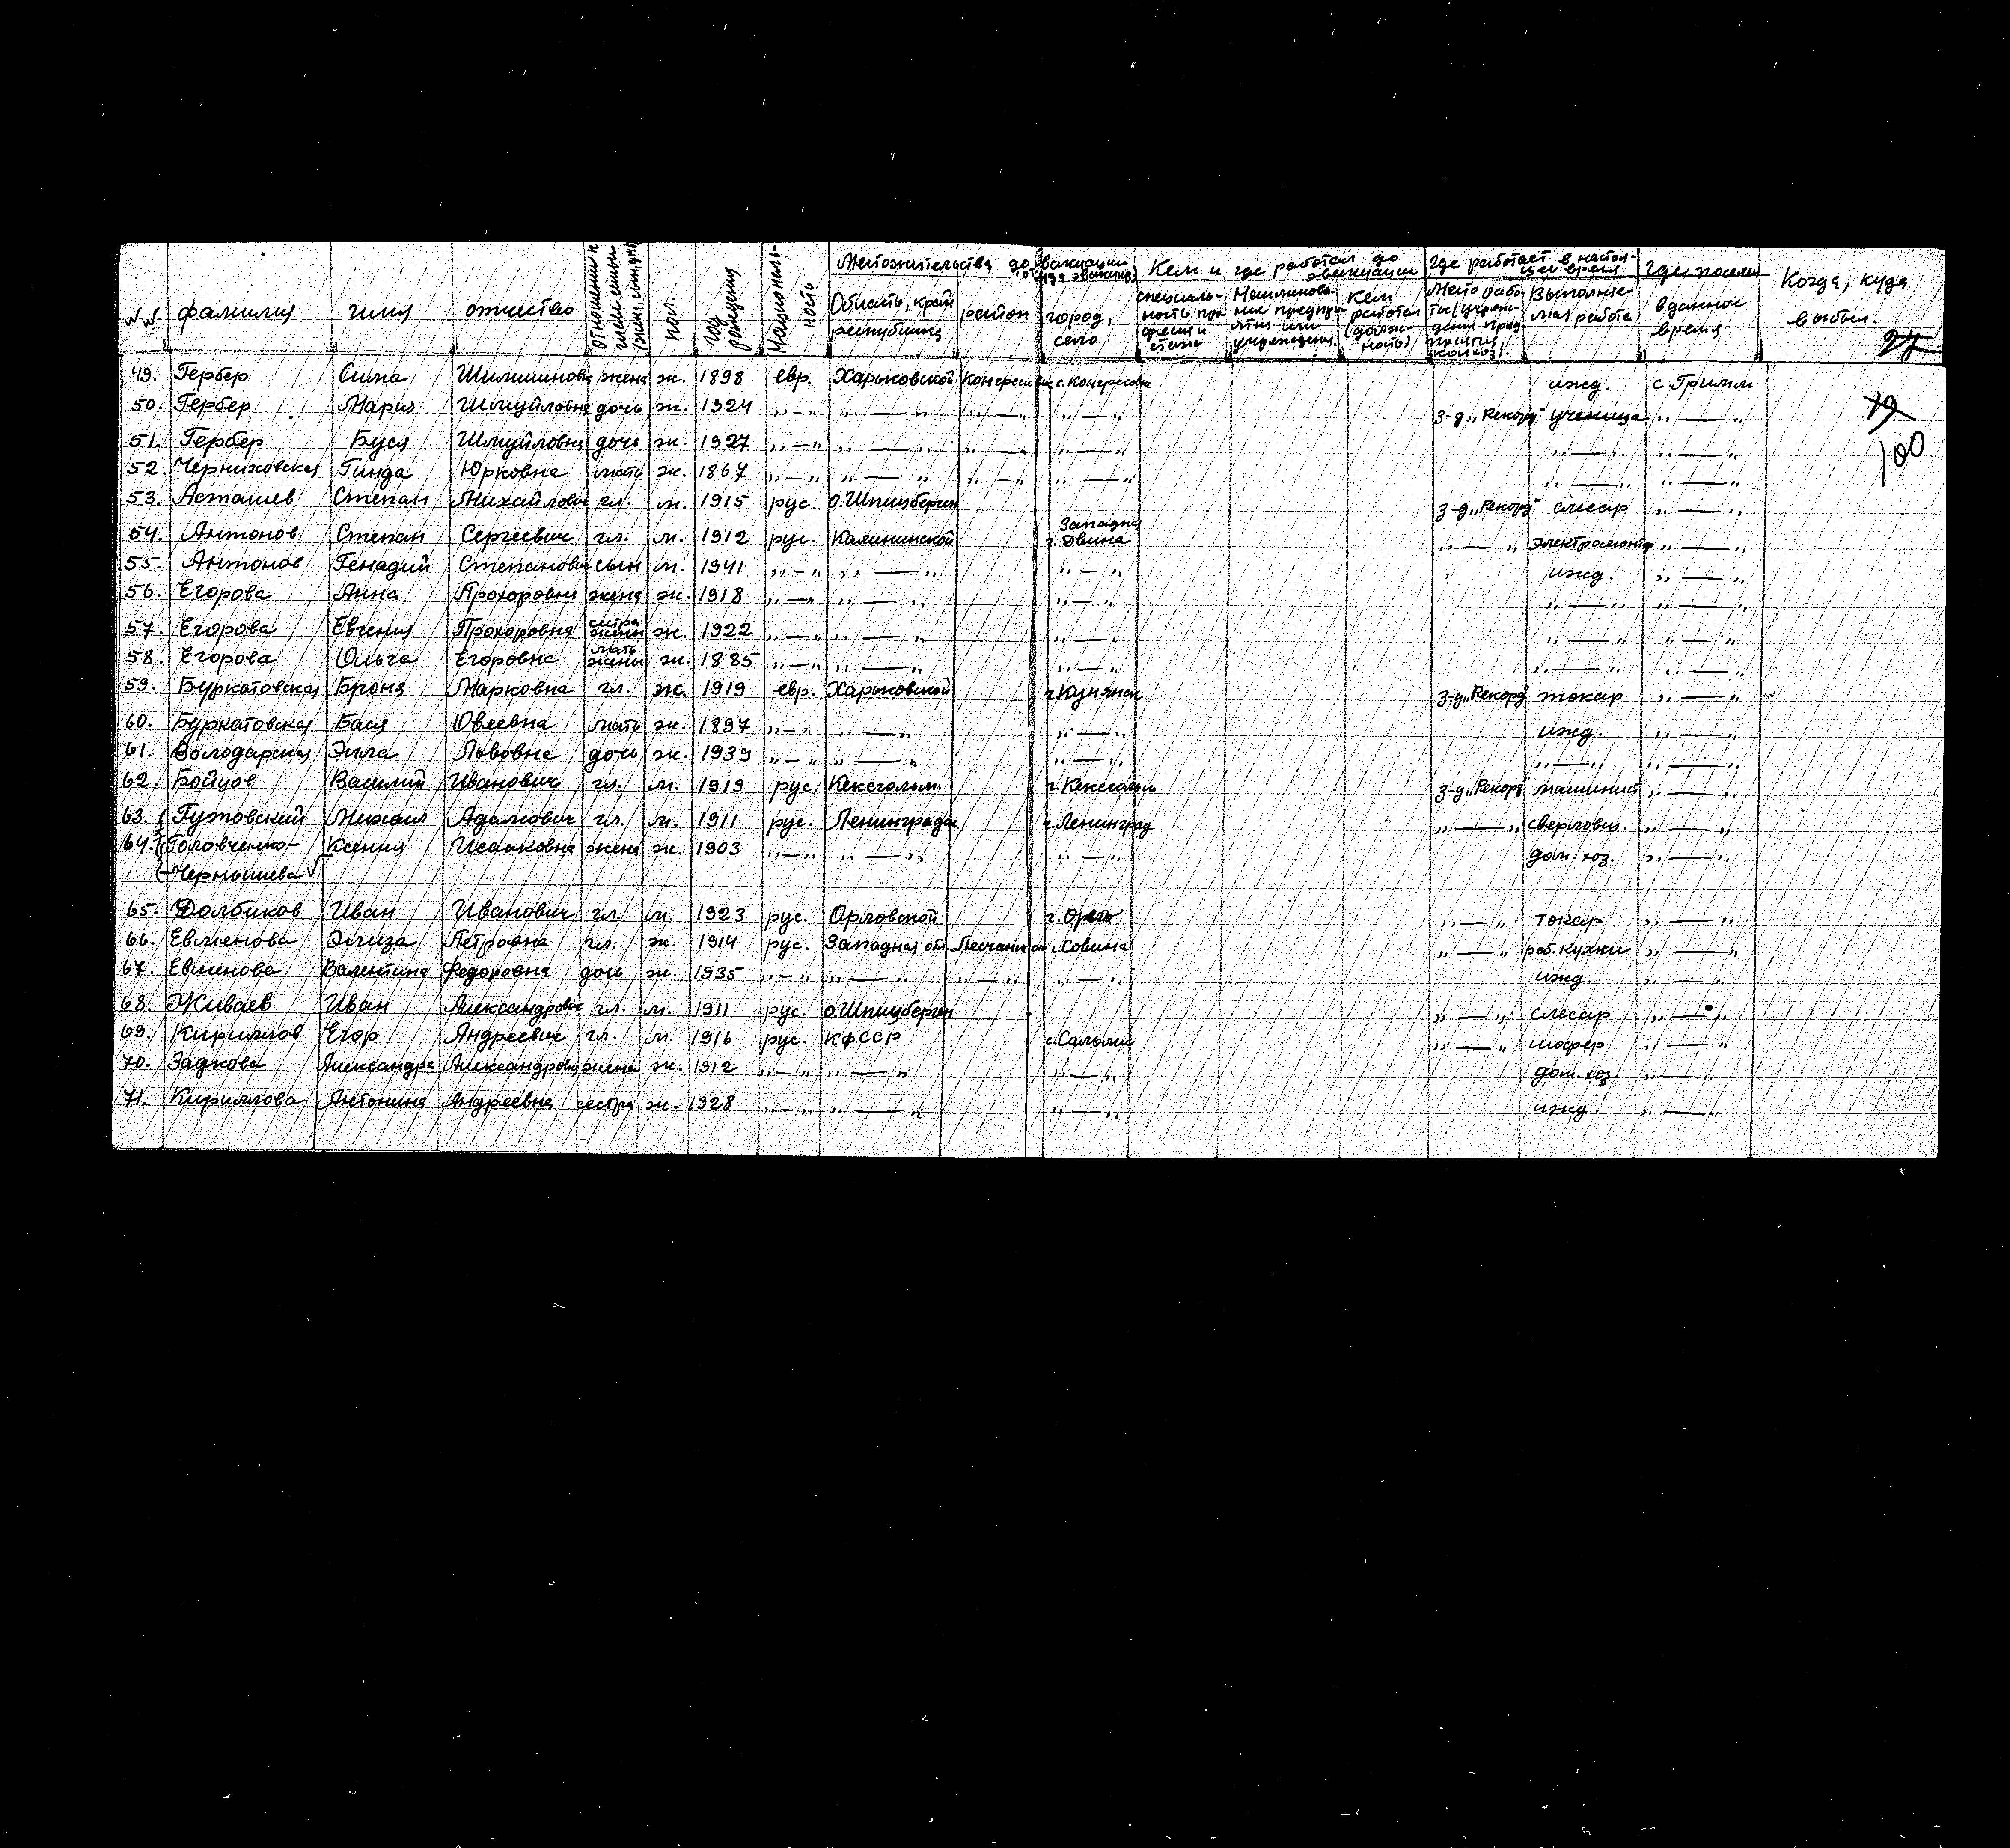 №№ фамилия имя отчество отношение к члену семьи (жена, сын, дочь) пол. год рождения Национальность Местожительства до эвакуации (откуда эвакуир.) Кем и где работал до эвакуации Где работает в настоящее время Где поселен в данное время Когда, куда выбыл.
Область, край республика район город, село специальность профессия и стаж Наименование предприятия или учреждения. Кем работал (должность) Место работы (учреждения предприятия колхоз). Выполняемая работа
27
49. Гербер Сима жена ж. 1898 евр. Харьковской с. ижд. с Гримм
50. Гербер Мария Шмуйловна дочь ж. 1924 „—„ „—„ „—„ „—„ з-д „Рекорд" ученица „—„ 79
51. Гербер Буся Шмуйловна дочь ж. 1927 „—„ „—„ „—„ „—„ „—„ „—„ 100
52. Черниховская Гинда Юрковна мать ж. 1867 „—„ „—„ „—„ „—„ „—„ „—„
53. Асташев Степан Михайлович гл. м. 1915 рус. о.Шпицберген з-д „Рекорд" слесар „—„
54. Антонов Степан Сергеевич гл. м. 1912 рус. Калининской Западная г. Двина „—„ электромонтер „—„
55. Антонов Генадий Степанович сын м. 1941 „—„ „—„ „—„ ижд. „—„
56. Егорова Анна Прохоровна жена ж. 1918 „—„ „—„ „—„ „—„ „—„
57. Егорова Евгения Прохоровна сестра жены ж. 1922 „—„ „—„ „—„ „—„ „—„
58. Егорова Ольга Егоровна мать жены ж. 1885 „—„ „—„ „—„ „—„ „—„
59. Буркатовская Броня Марковна гл. ж. 1919 евр. Харьковской г.Купянск з-д „Рекорд" токар „—„
60. Буркатовская Бася Овсеевна мать ж. 1897 „—„ „—„ „—„ ижд. „—„
61. Володарская Элла Львовна дочь ж. 1939 „—„ „—„ „—„ „—„ „—„
62. Бойцов Василий Иванович гл. м. 1919 рус. Кексгольм. г.Кексгольм з-д „Рекорд" машинист „—„
63. Гутовский Михаил Адамович гл. м. 1911 рус. Ленинградск г.Ленинград „—„ сверловщ. „—„
64. Головченко- Ксения Исааковна жена ж. 1903 „—„ „—„ „—„ дом. хоз. „—„
-Чернышева
65. Долбиков Иван Иванович гл. м. 1923 рус. Орловской г. Орел „—„ токар „—„
66. Евменова Элиза Петровна гл. ж. 1914 рус. Западная обл. с.Совина „—„ раб. кухни „—„
67. Евменова Валентина Федоровна дочь ж. 1935 „—„ „—„ „—„ „—„ ижд. „—„
68. Живаев Иван Александрович гл. м. 1911 рус. о.Шпицберген „—„ слесар „—„
69. Кириллов Егор Андреевич гл. м. 1916 рус. КФССР с.Салми „—„ шофер „—„
70. Задкова Александра Александровна жена ж. 1912 „—„ „—„ „—„ дом. хоз. „—„
71. Кириллова Антонина Андреевна сестра ж. 1928 „—„ „—„ „—„ ижд. „—„